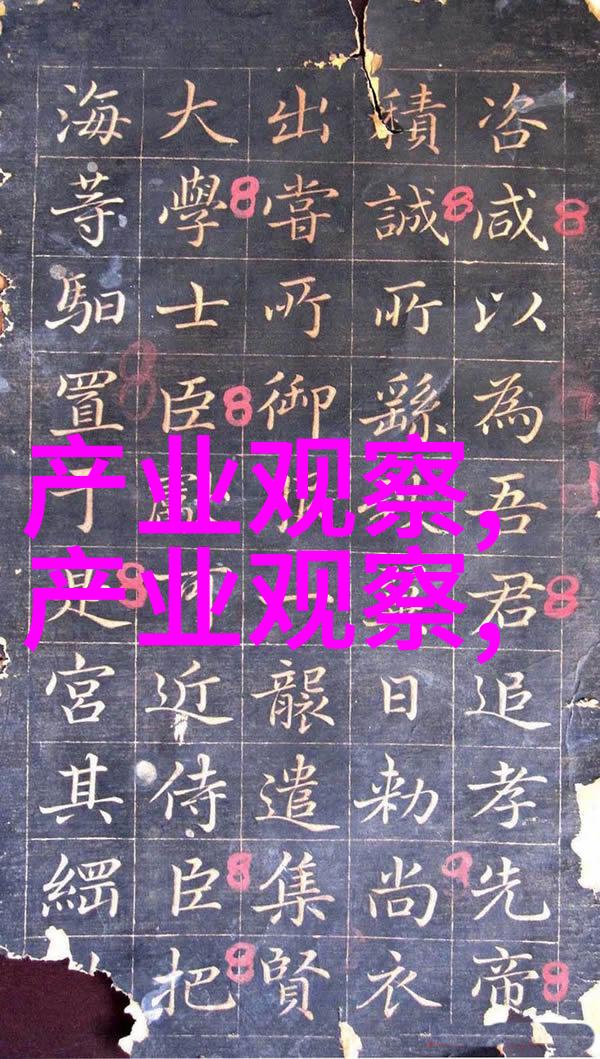 咨咸以為吾君追孝先帝
積誠所繇日勅尚衣
出嘗所御一襲遣集賢
大學士臣可近侍臣把
海等馹置于是宮其
产业观察,
产业观察,